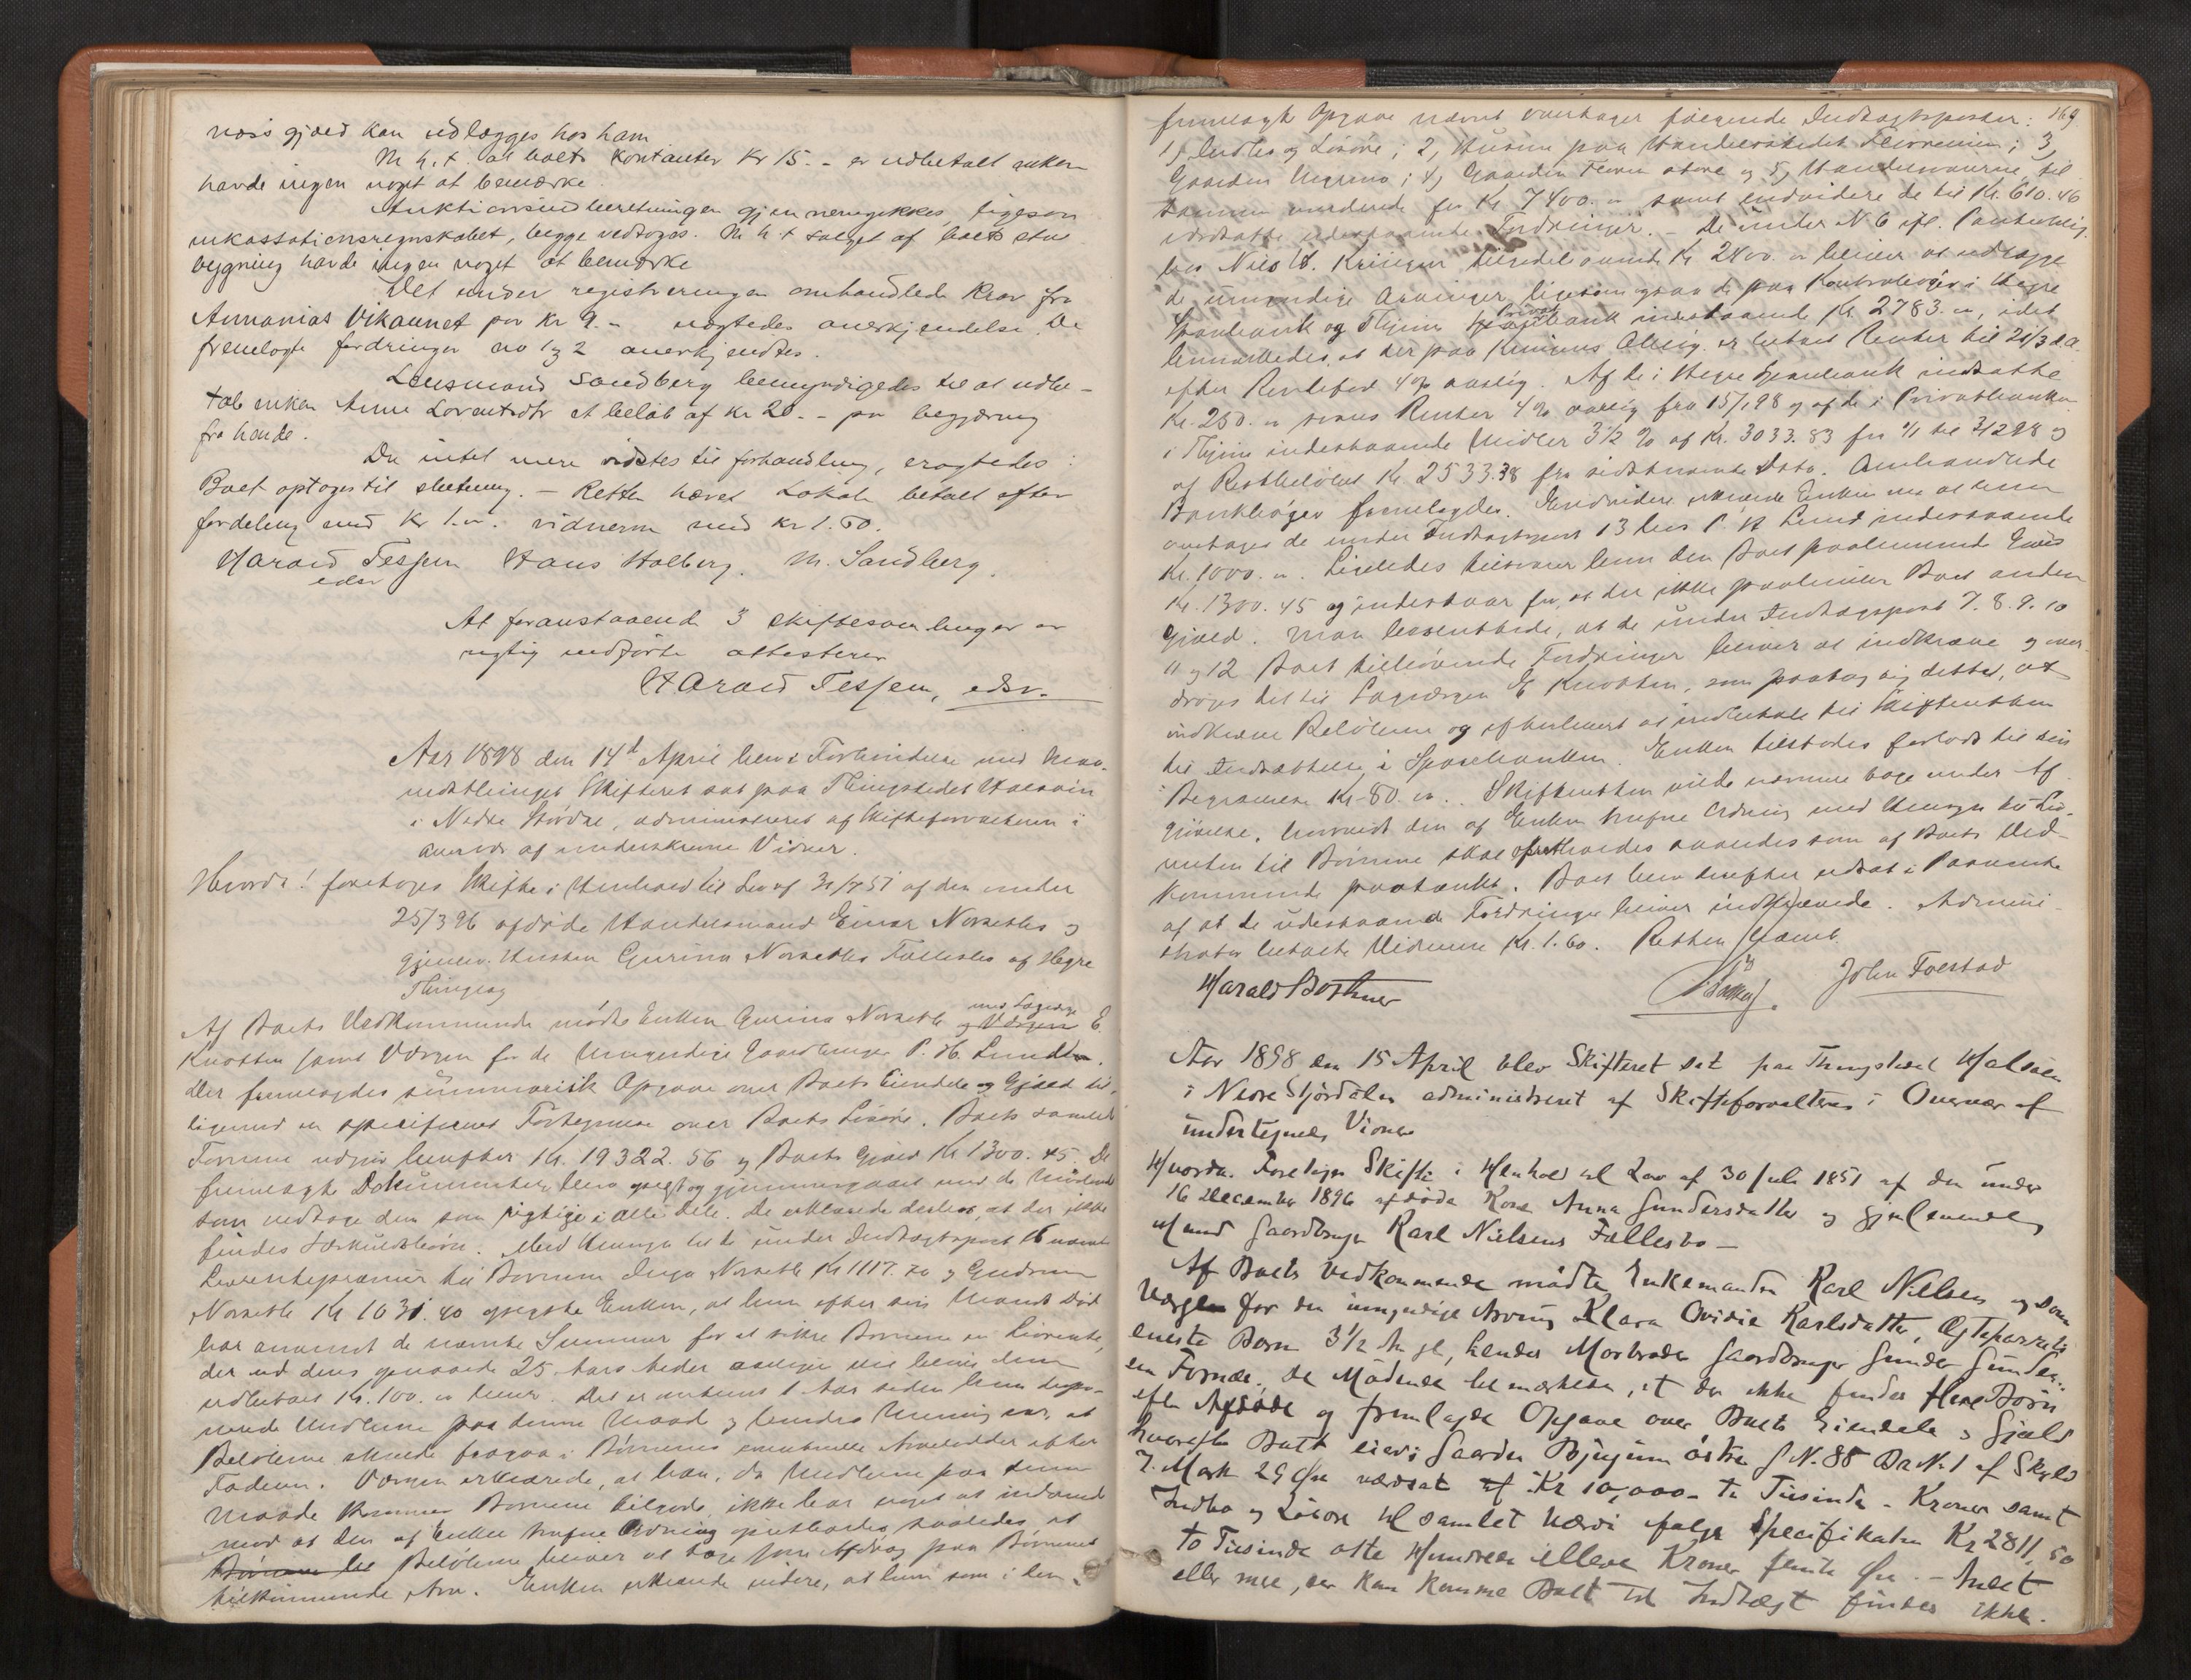 næss gjæld kan udlægges hos ham
M. h. t. at boets kontanter Kr 15.- er udbetalt enken
havde ingen noget at bemærke.
Auktionsindberetningen gjennemgikkes, ligesom
inkassationsregnskabet, begge vedtoges. M. h. t. salget af boets stue
bygning havde ingen noget at bemærke
Det under registreringen omhandlede Krav fra
Annanias Vikaunet paa Kr 9.- nægtedes anerkjendelse. De
fremlagte fordringer no 1 og 2 anerkjendtes.
Lensmand Sandberg bemyndigedes til at udbe-
tale enken Anne Lorntsdtr et beløb af Kr 20.- paa begjæring
fra hende.
Da intet mere vidstes til forhandling, eragtedes:
Boet optoges til slutning. - Retten hævet. Lokale betalt efter
fordeling med Kr 1.-. vidnerne med Kr 1.60.
Harald Tessem Hans Halberg. M. Sandberg.
edsv
At foranstaaende 3 skiftesamlinger er
rigtig indførte attesterer
Harald Tessem, edsv.
Aar 1898 den 14d April blev i Forbindelse med Maa-
nedsthinget Skifteret sat paa Thingstedet Halsøien
i Nedre Stjørdal, administreret af Skifteforvalteren i
Overvær af underskrevne Vidner.
Hvorda! foretoges Skifte i Henhold til Lov af 30/7 51 af den under
25/3 96 afdøde Handelsmand Einar Norsetlis og
gjenlev. Hustru Gurina Norsetlis Fællesbo af Hegre
Thinglag
Af Boets Vedkommende mødte Enken Gurina Norsetli med Lagværge og Værgen E.
Knotten samt Værgen for de Umyndige Gaardbruger P. H. Lundtrø.
Der fremlagdes summarisk Opgave over Boets Eiendele og Gjæld til-
ligemed en specificeret Fortegnelse over Boets Løsøre. Boets samlede
Formue udgjør herefter Kr. 19322.56 og Boets Gjæld Kr 1300.45. De
fremlagte Dokumenter blev oplæst og gjennemgaaet med de Mødende
som vedtoge dem som rigtige i alle Dele. De erklærede derhos, at der ikke
findes Særkuldsbørn. Med Hensyn til de under Indtægtspost 16 nævnte
Livrentepræmier til Børnene Inga Norsetli Kr 1117.70 og Gudrun
Norsetli Kr 1031.40 oplyste Enken, at hun efter sin Mands Død
har anvendt de nævnte Summer for at sikre Børnene en Livrente,
der ved dens opnaaede 25 Aars Alder aarligen vil blive dem
udbetalt Kr. 100.- hver. Det er omtrent 1 Aar siden hun depo-
nerede Midlerne paa denne Maade og hendes Mening var, at
Beløbene skulde fragaa i Børnenes eventuelle Arvelodder efter
Faderen. Værgen erklærede, at han, da Midlerne paa denne
Maade kommer Børnene tilgode, ikke har noget at indvende
mod at den af Enken trufne Ordning opretholdes saaledes at
Børnene Beløbene bliver at tage som Afdrag paa Børnenes
tilkommende Arv. Enken erklærede videre, at hun som i den
169
fremlagte Opgave nævnt overtager følgende Indtægtsposter:
1) Indbo og Løsøre; 2, Husene paa Handelsstedet Fleirenim; 3,
Gaarden Ingrimo; 4) Gaarden Fleren store og 5) Handelsvarerne til
sammen vurderede for Kr 7400.- samt endvidere de til Kr. 610.40
værdsatte udestaaende Fordringer. - De under N. 6 ifl. Pantoblig.
hos Nils H. Kringen tilgodehavende Kr 2400.- bliver at udlægge
de umyndige Arvinger ligesom ogsaa de paa Kontrabøger i Hegre
Sparebank og Thjems Privatbank indestaaende Kr 2783.-, idet
bemærkedes at der paa Kringens Oblig. er betalt Renter til 21/3 d.A.
efter Rentefod 4% aarlig. Af de i Hegre Sparebank indsatte
Kr. 250.- svares Renter 4% aarlig fra 15/1 98 og af de i Privatbanken
i Thjem indestaaende Midler 3½ % af Kr. 3033.83 fra 1/1 til 3/2 98 og
af Restbeløbet Kr. 2533.38 fra sidstnævnte Dato. Omhandlede
Bankbøger fremlagdes. Endvidere erklærede Enken sig at ville
overtage de under Indtægtspost 13 hos P. H. Lund indestaaende
Kr. 1000.-. Ligeledes tilsvarer hun den Boet paahvilende Gjæld
Kr. 1300.45 og indestaar for, at der ikke paahviler Boet anden
Gjæld. Man besluttede, at de under Indtægtspost 7. 8. 9. 10
11 og 12 Boet tilhørende Fordringer bliver at indkræve og over-
drages det til Lagværgen E Knotten, som paatog sig dette, at
indkræve Beløbene og efterhvert at indbetale til Skifteretten
til Indsættelse i Sparebanken. Enken tilstodes forlods til sin
Begravelse Kr. 80.-. Skifteretten vilde nærmere tage under Af-
gjørelse, hvorvidt den af Enken trufne Ordning med Hensyn til Liv-
renten til Børnene skal opretholdes saaledes som af Boets Ved-
kommende paatænkt. Boet blev derefter udsat i Paavente
af at de udestaaende Fordringer bliver indkrævede. Admini-
strator betalte Vidnerne Kr. 1.60. Retten hævet.
Harald Bothner
John Folstad
Aar 1898 den 15 April blev Skifteret sat paa Thingstedet Halsøen
i Nedre Stjørdalen administreret af Skifteforvalteren i Overvær af
undertegnede Vidner
Hvorda. Foretoges Skifte i Henhold til Lov af 30 Juli 1851 af den under
16 December 1896 afdøde Kone Anna Gundersdatter og gjenlevende
Mand Gaardbruger Karl Nielsens Fællesbo -
Af Boets Vedkommende mødte Enkemanden Karl Nielsen og som
Værge for den umyndige Arving Klara Ovidia Karlsdatter, Ægteparrets
eneste Barn 3½ Aar gl, hendes Morbroder Gaardbruger Gunder Gunder-
sen Fornæs. De Mødende bemærkede, at der ikke findes flere Børn
efter Afdøde og fremlagde Opgave over Boets Eiendele og Gjæld
hvorefter Boet eier: Gaarden Bjugum østre G N. 88 Br N. 1 af Skyld
7. Mark 29 Øre værdsat til Kr 10,000 - ti Tusinde - Kroner samt
Indbo og Løsøre til samlet Værdi følge Specifikation Kr 2811,50
to Tusinde otte Hundrede elleve Kroner femti Øre. - Andet
eller mere, der kan komme Boet til Indtægt findes ikke.